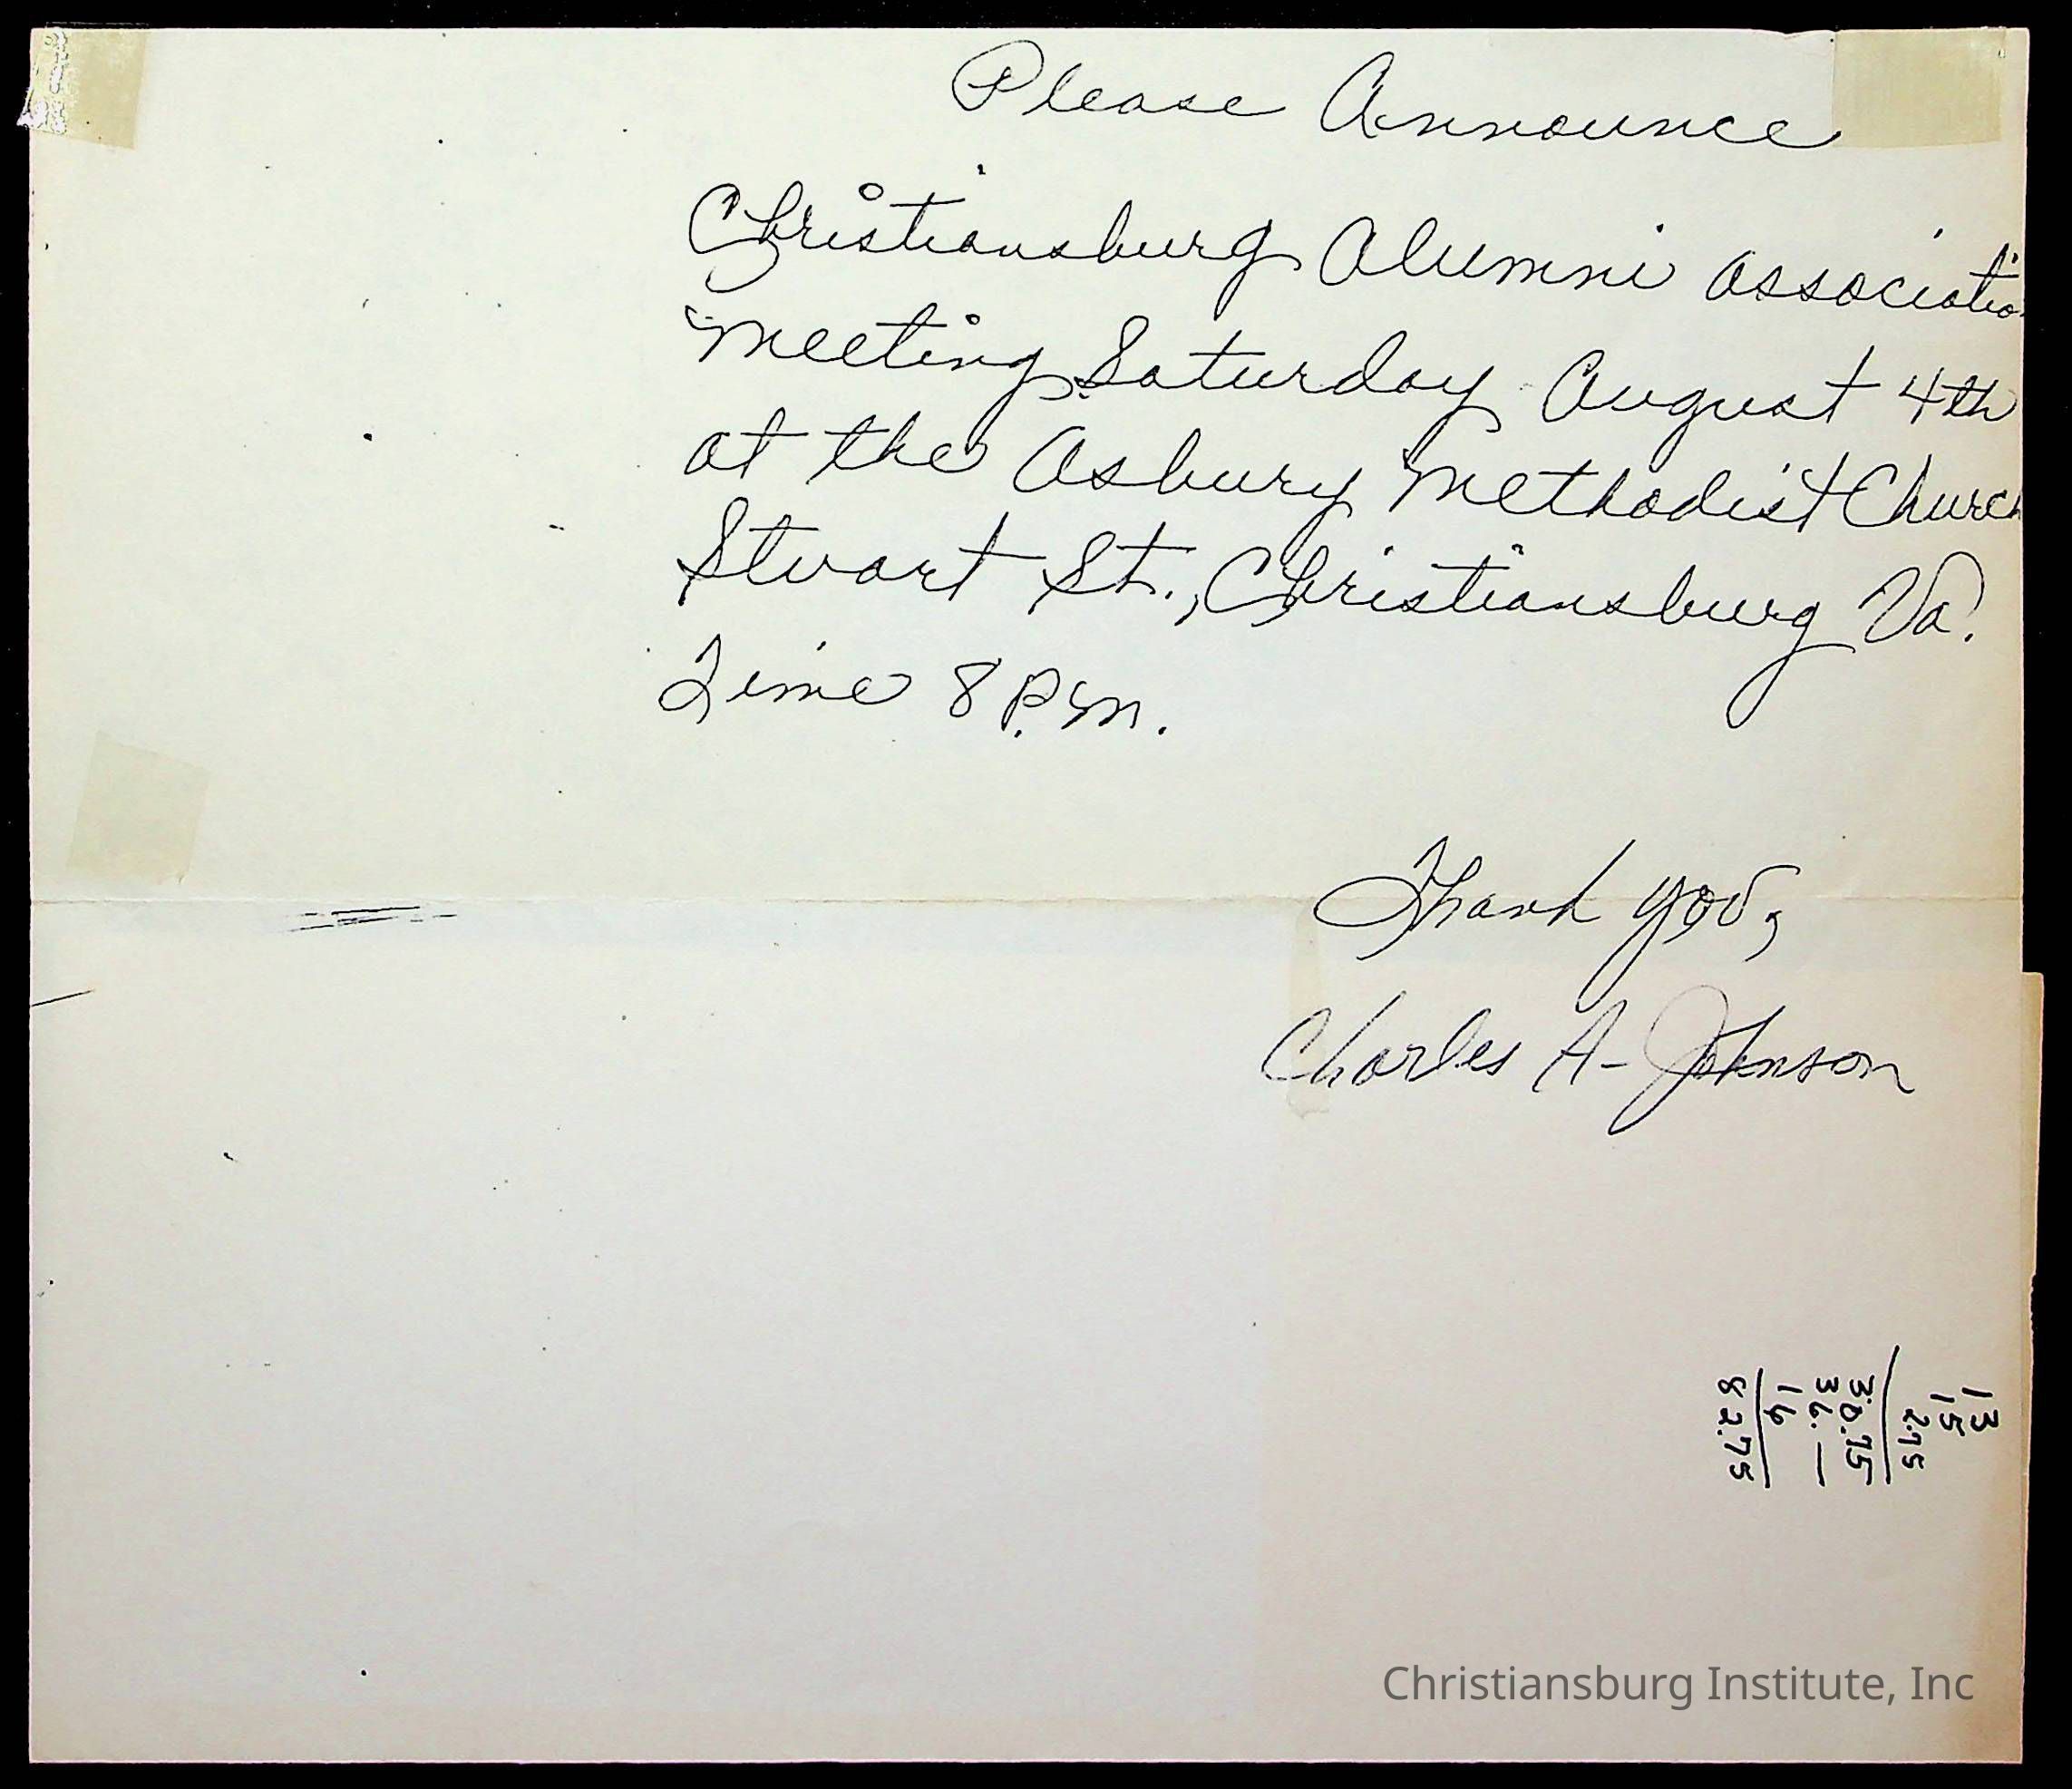 Please Announce
Christiansburg Alumni Associatio
Meeting Saturday August 4th
at the Asbury Methodist Church
Stuart St., Christiansburg Va.
Time 8 P.M.
Thank you,
Charles A. Johnson
13
15
2.75
30.75
36.—
16
82.75
Christiansburg Institute, Inc